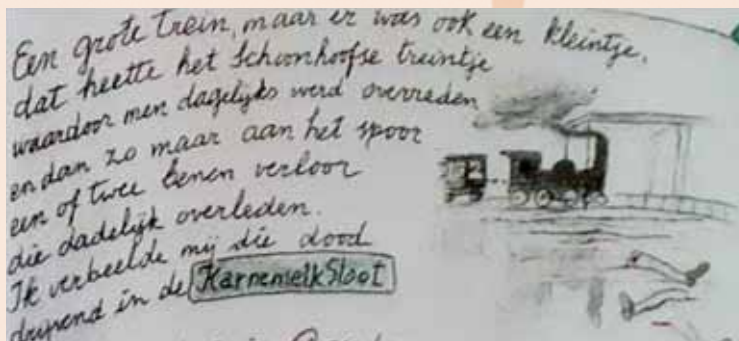 Een grote trein, maar er was ook een kleintje,
dat heette het Schoonhoofse treintje
waardoor men dagelijks werd overreden
en dan zo maar aan het spoor
een of twee benen verloor
die dadelijk overleden.
Ik verbeelde mij die dood
drijvend in de KarnemelkSloot